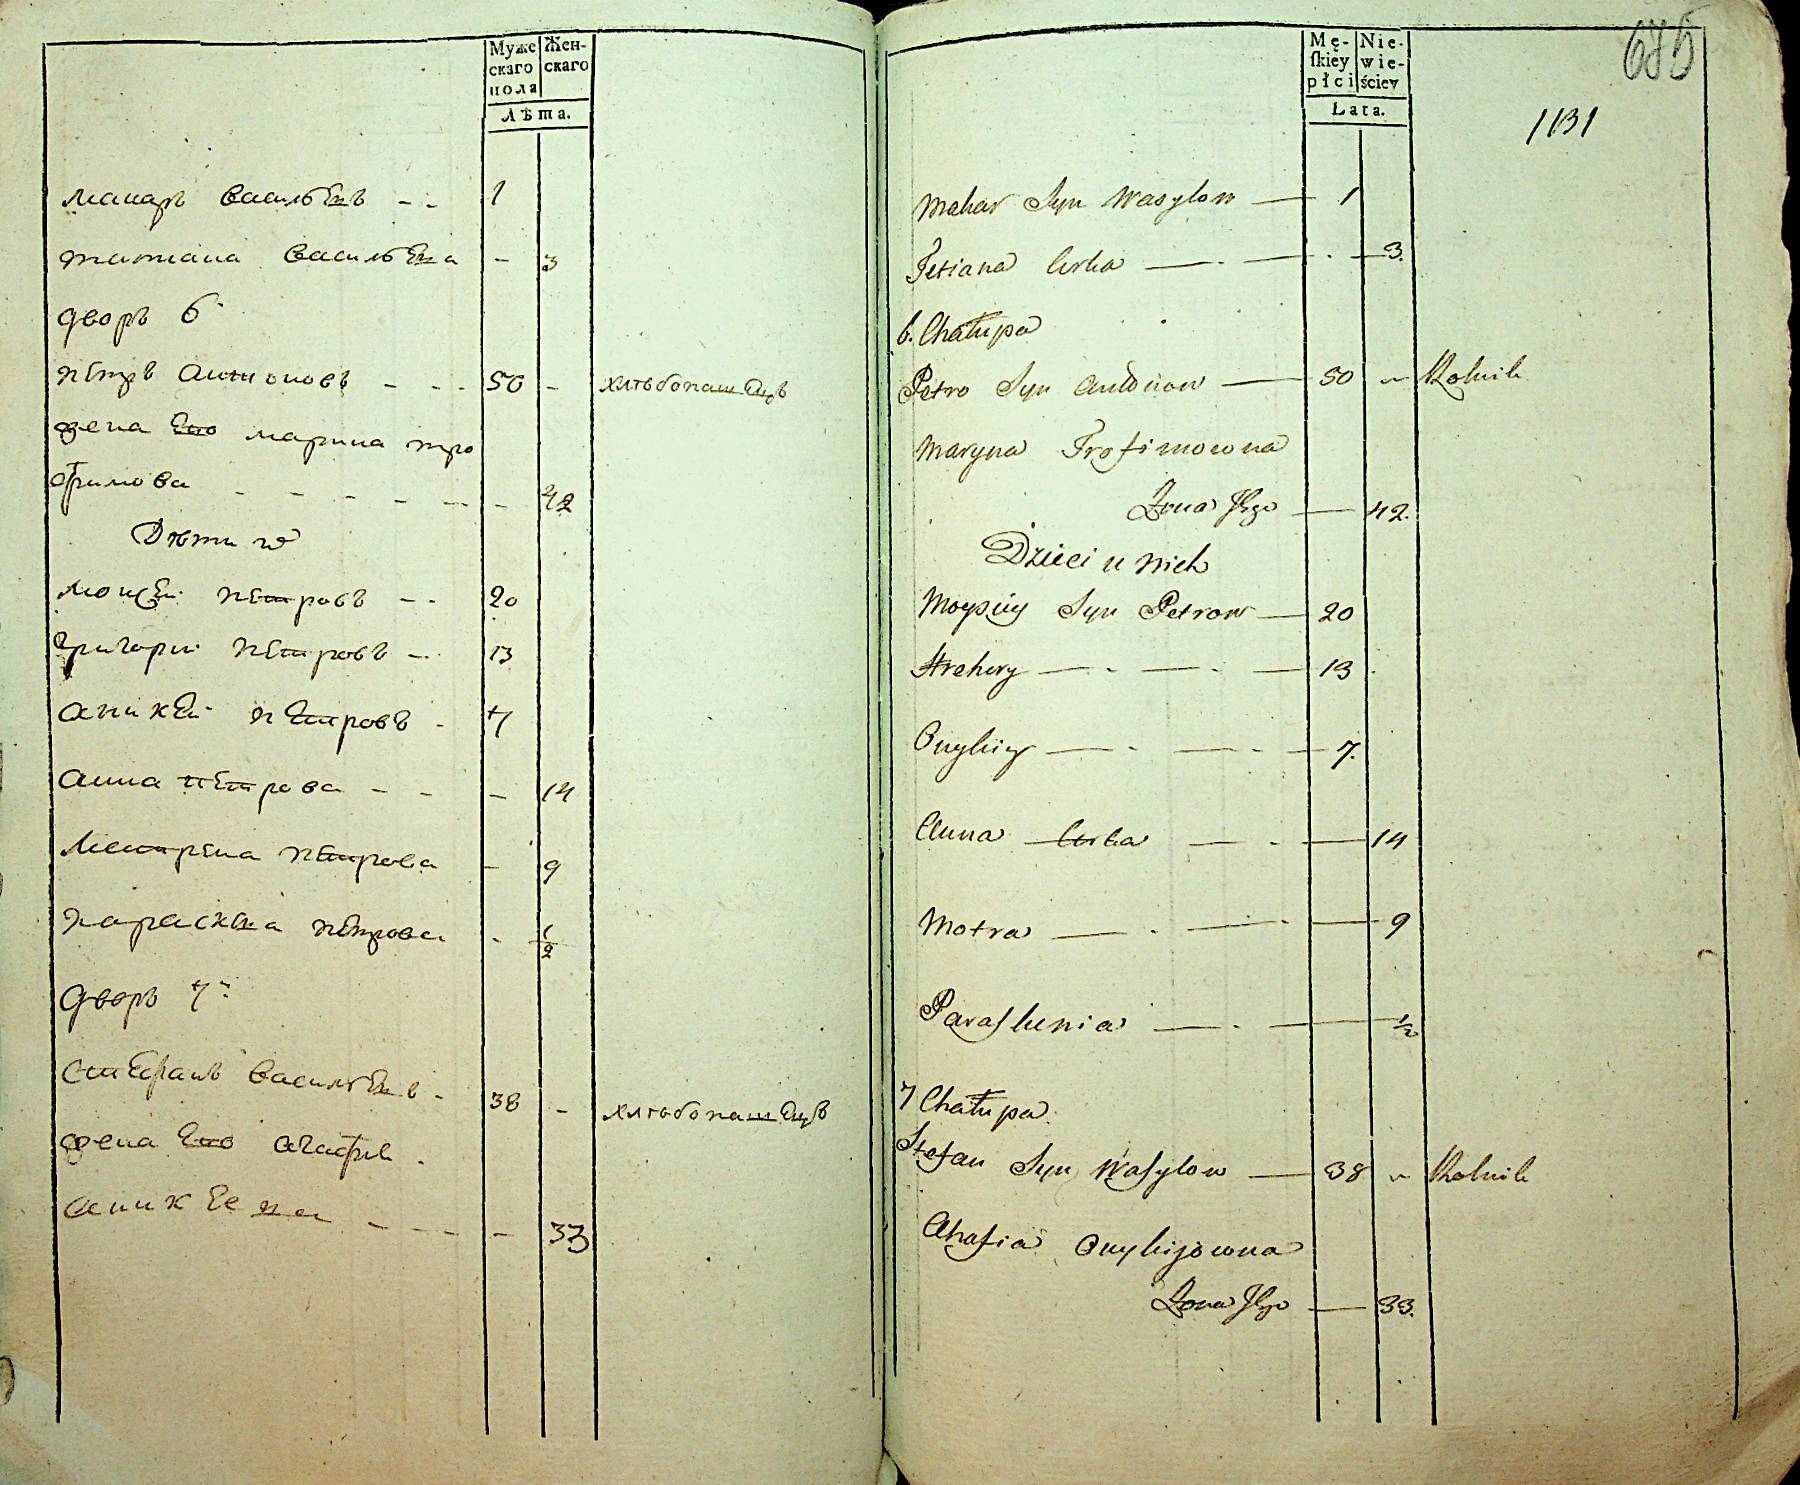 Муже Жен-
скаго скаго
пола
Лѣта.
макаръ васильевъ - - 1
татиана васильева - 3
дворъ 6й
петръ антоновъ - - - 50 - хлѣбопашецъ
жена его марина тро
фимова - - - - - - 42
Дѣти ихъ
моисей петровъ - - 20
григорий петровъ - 13
аникей петровъ - 7
анна петрова - - - 14
мотрена петрова - 9
параскева петрова - 1/2
дворъ 7й
стефанъ васильевъ - 38 - хлѣбопашецъ
жена его агафия
аникеева - - - - 33
685
1131
Mę- Nie-
skiey wie-
płci ściey
Lata.
Mahar Syn Wasylow — 1
Tetiana Corka — . — . — 3.
6. Chałupa
Petro Syn Antonow — 50 " Rolnik
Maryna Trofimowna
Żona Jego — 42.
Dzieci u nich
Moysiy Syn Petrow — 20
Hrehory — . — . — 13
Onykiy — . — . — 7.
Anna Corka — . — 14
Motra — . — . — 9
Paraskewia — . — 1/2
7 Chałupa
Stefan Syn Wasylow — 38 " Rolnik
Ahafia Onykijowna
Żona Jego — 33.